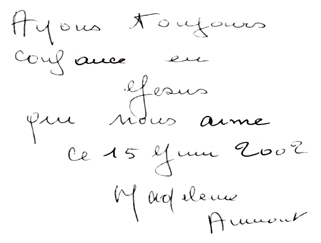 Ayons toujours
confiance en
Jesus
qui nous aime
ce 15 Juin 2002
Madeleine